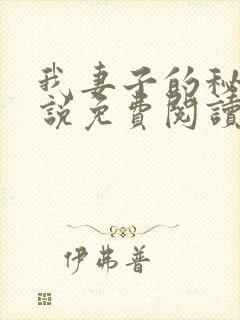 我妻子的秘
說免費閱讀
伊弗普